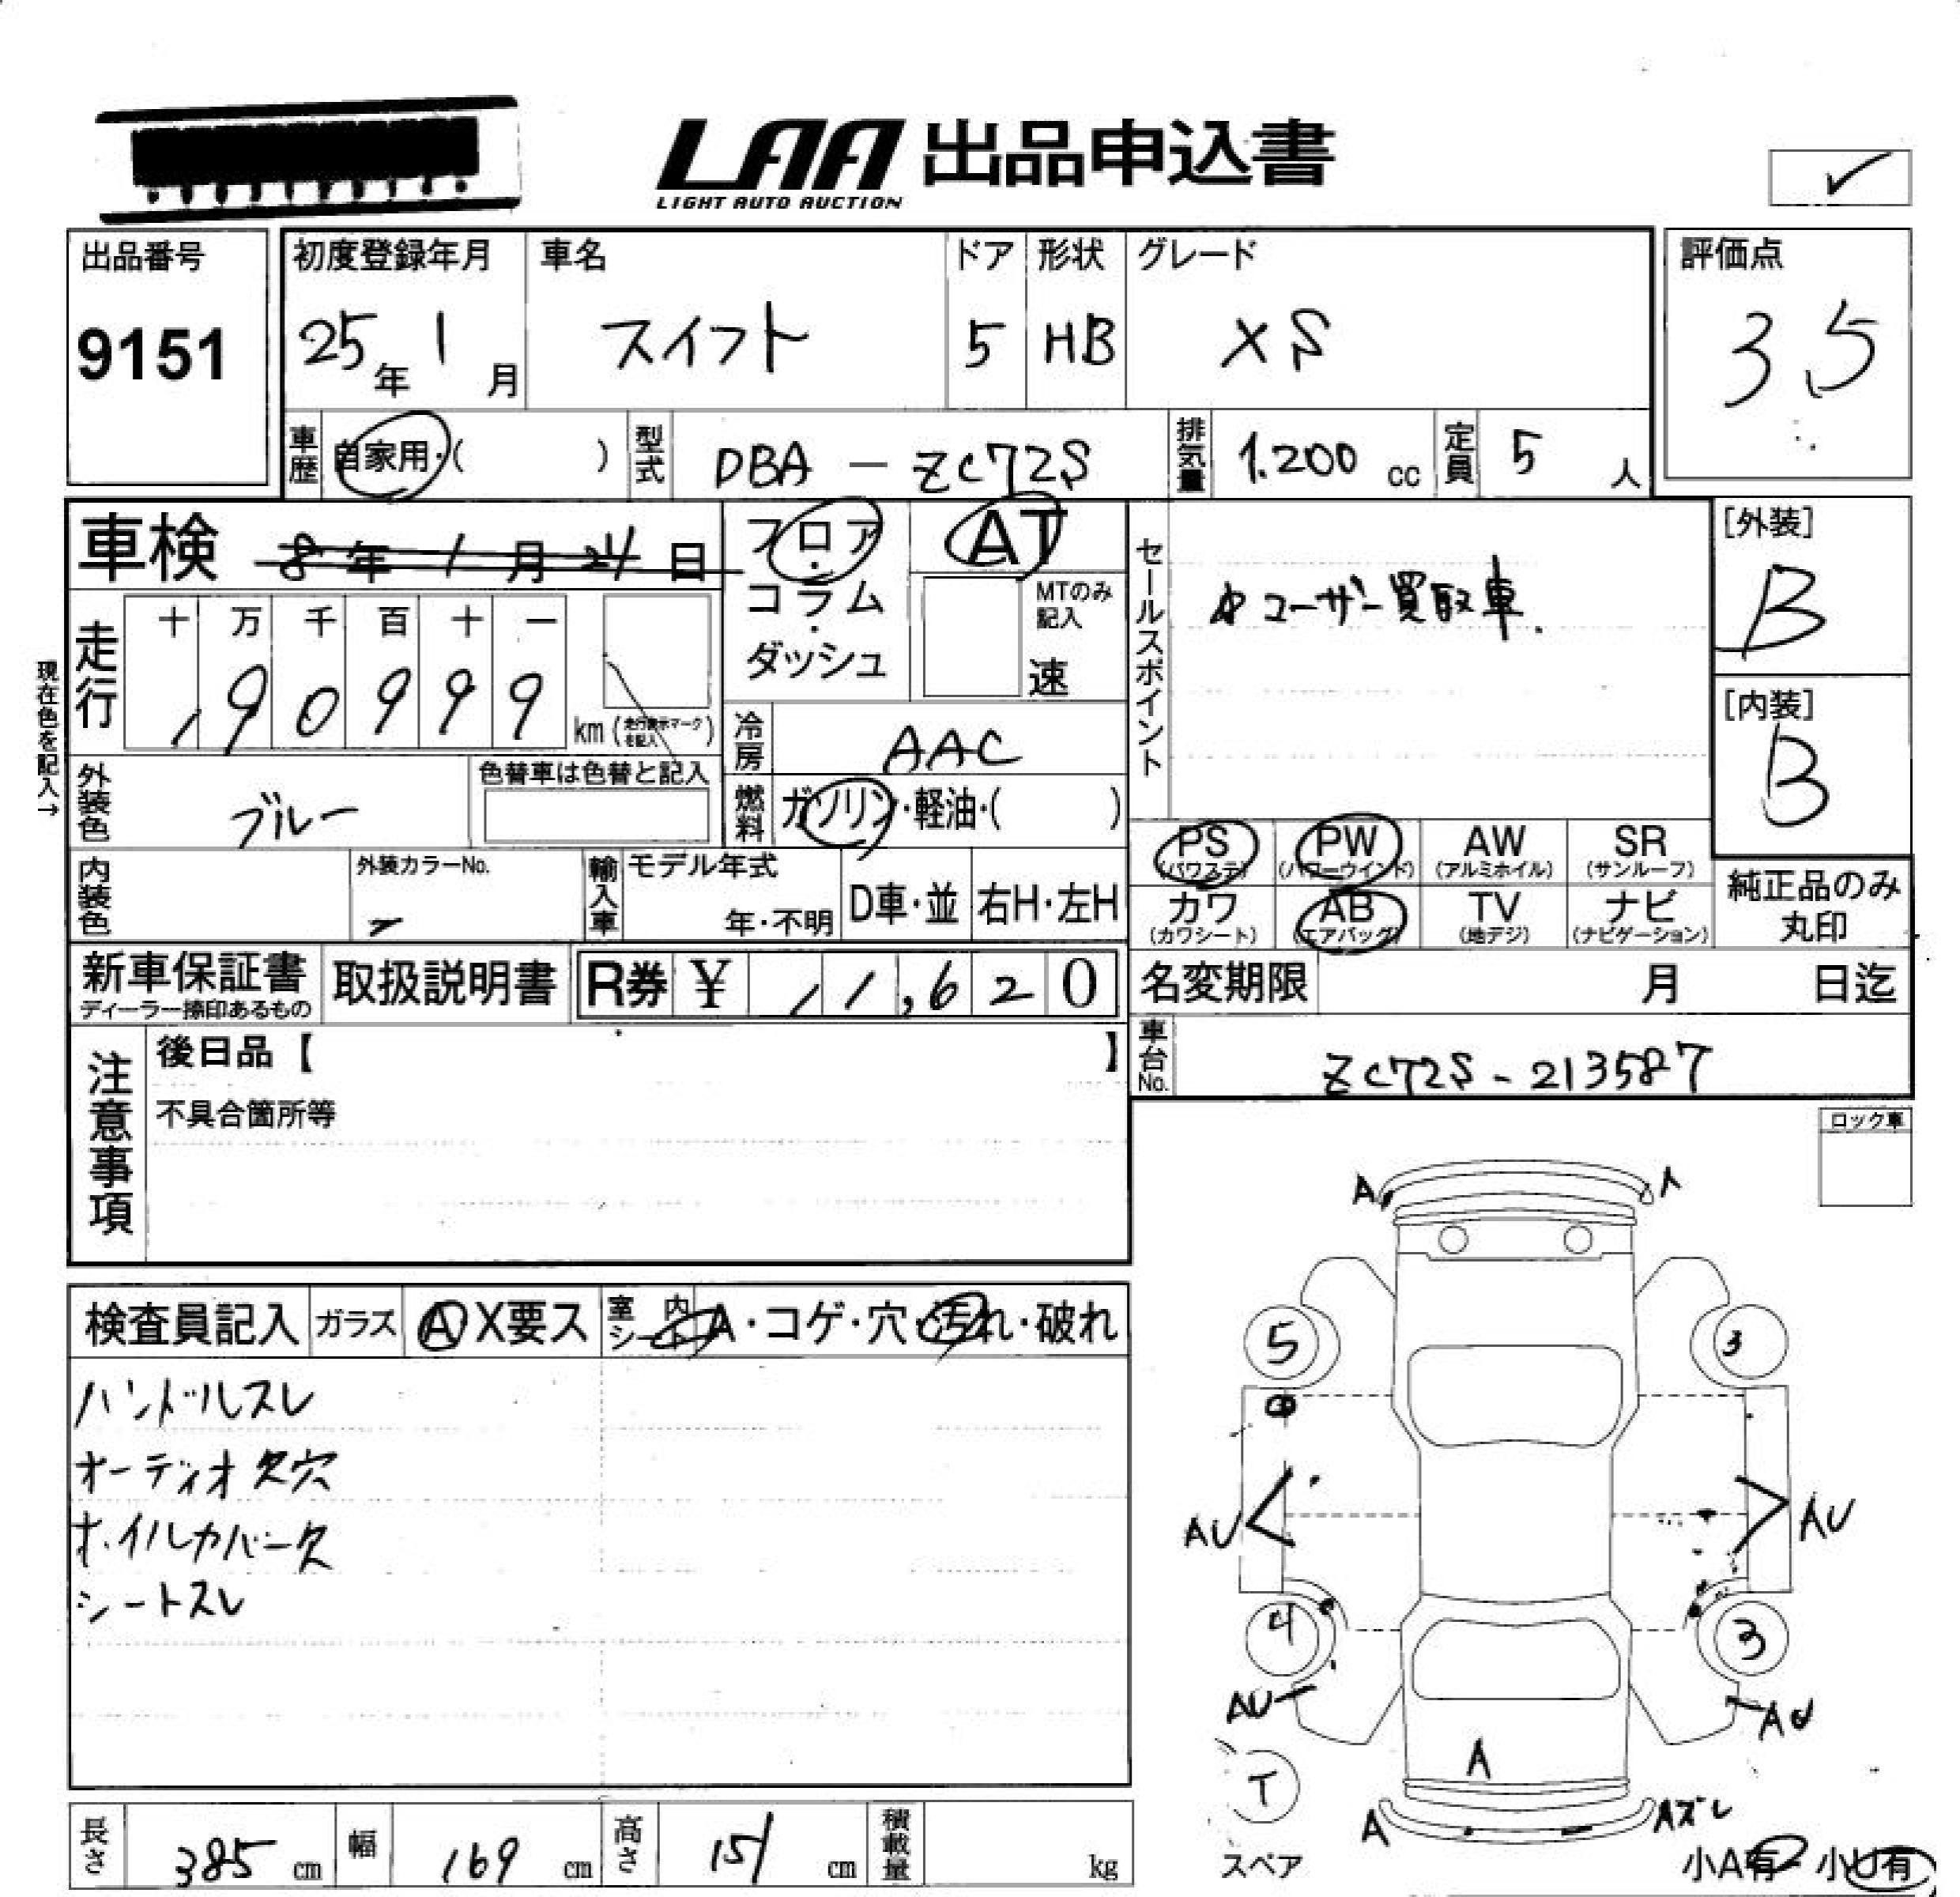 LAA 出品申込書
LIGHT AUTO AUCTION
✓
出品番号
9151
初度登録年月
25年 1月
車名
スイフト
ドア
5
形状
HB
グレード
XS
評価点
3.5
車歴 自家用・( )
型式 DBA - ZC72S
排気量 1.200 cc
定員 5 人
車検 8年 1月 24日
フロア・コラム・ダッシュ
AT
MTのみ記入
速
セールスポイント
ユーザー買取車.
[外装]
B
[内装]
B
現在色を記入→
走行
十 万 千 百 十 一
9 0 9 9 9
km (走行表示マークを記入)
冷房 AAC
外装色 ブルー
色替車は色替と記入
燃料 ガソリン・軽油・( )
PS (パワステ)
PW (パワーウインド)
AW (アルミホイル)
SR (サンルーフ)
カワ (カワシート)
AB (エアバック)
TV (地デジ)
ナビ (ナビゲーション)
純正品のみ丸印
内装色
外装カラーNo.
-
輸入車
モデル年式
年・不明
D車・並
右H・左H
新車保証書
ディーラー捺印あるもの
取扱説明書
R券 ¥ 1,620
名変期限 月 日迄
車台No. ZC72S-213587
注意事項
後日品【 】
不具合箇所等
ロック車
検査員記入
ガラス
A X要ス
室内シート
A・コゲ・穴・汚れ・破れ
ハンドルスレ
オーディオ欠穴
ホイルカバー欠
シートスレ
A
A
5
3
AU
AU
4
3
AU
AU
T
スペア
A
A
Aズレ
小A有・小U有
長さ 385 cm
幅 169 cm
高さ 151 cm
積載量 kg